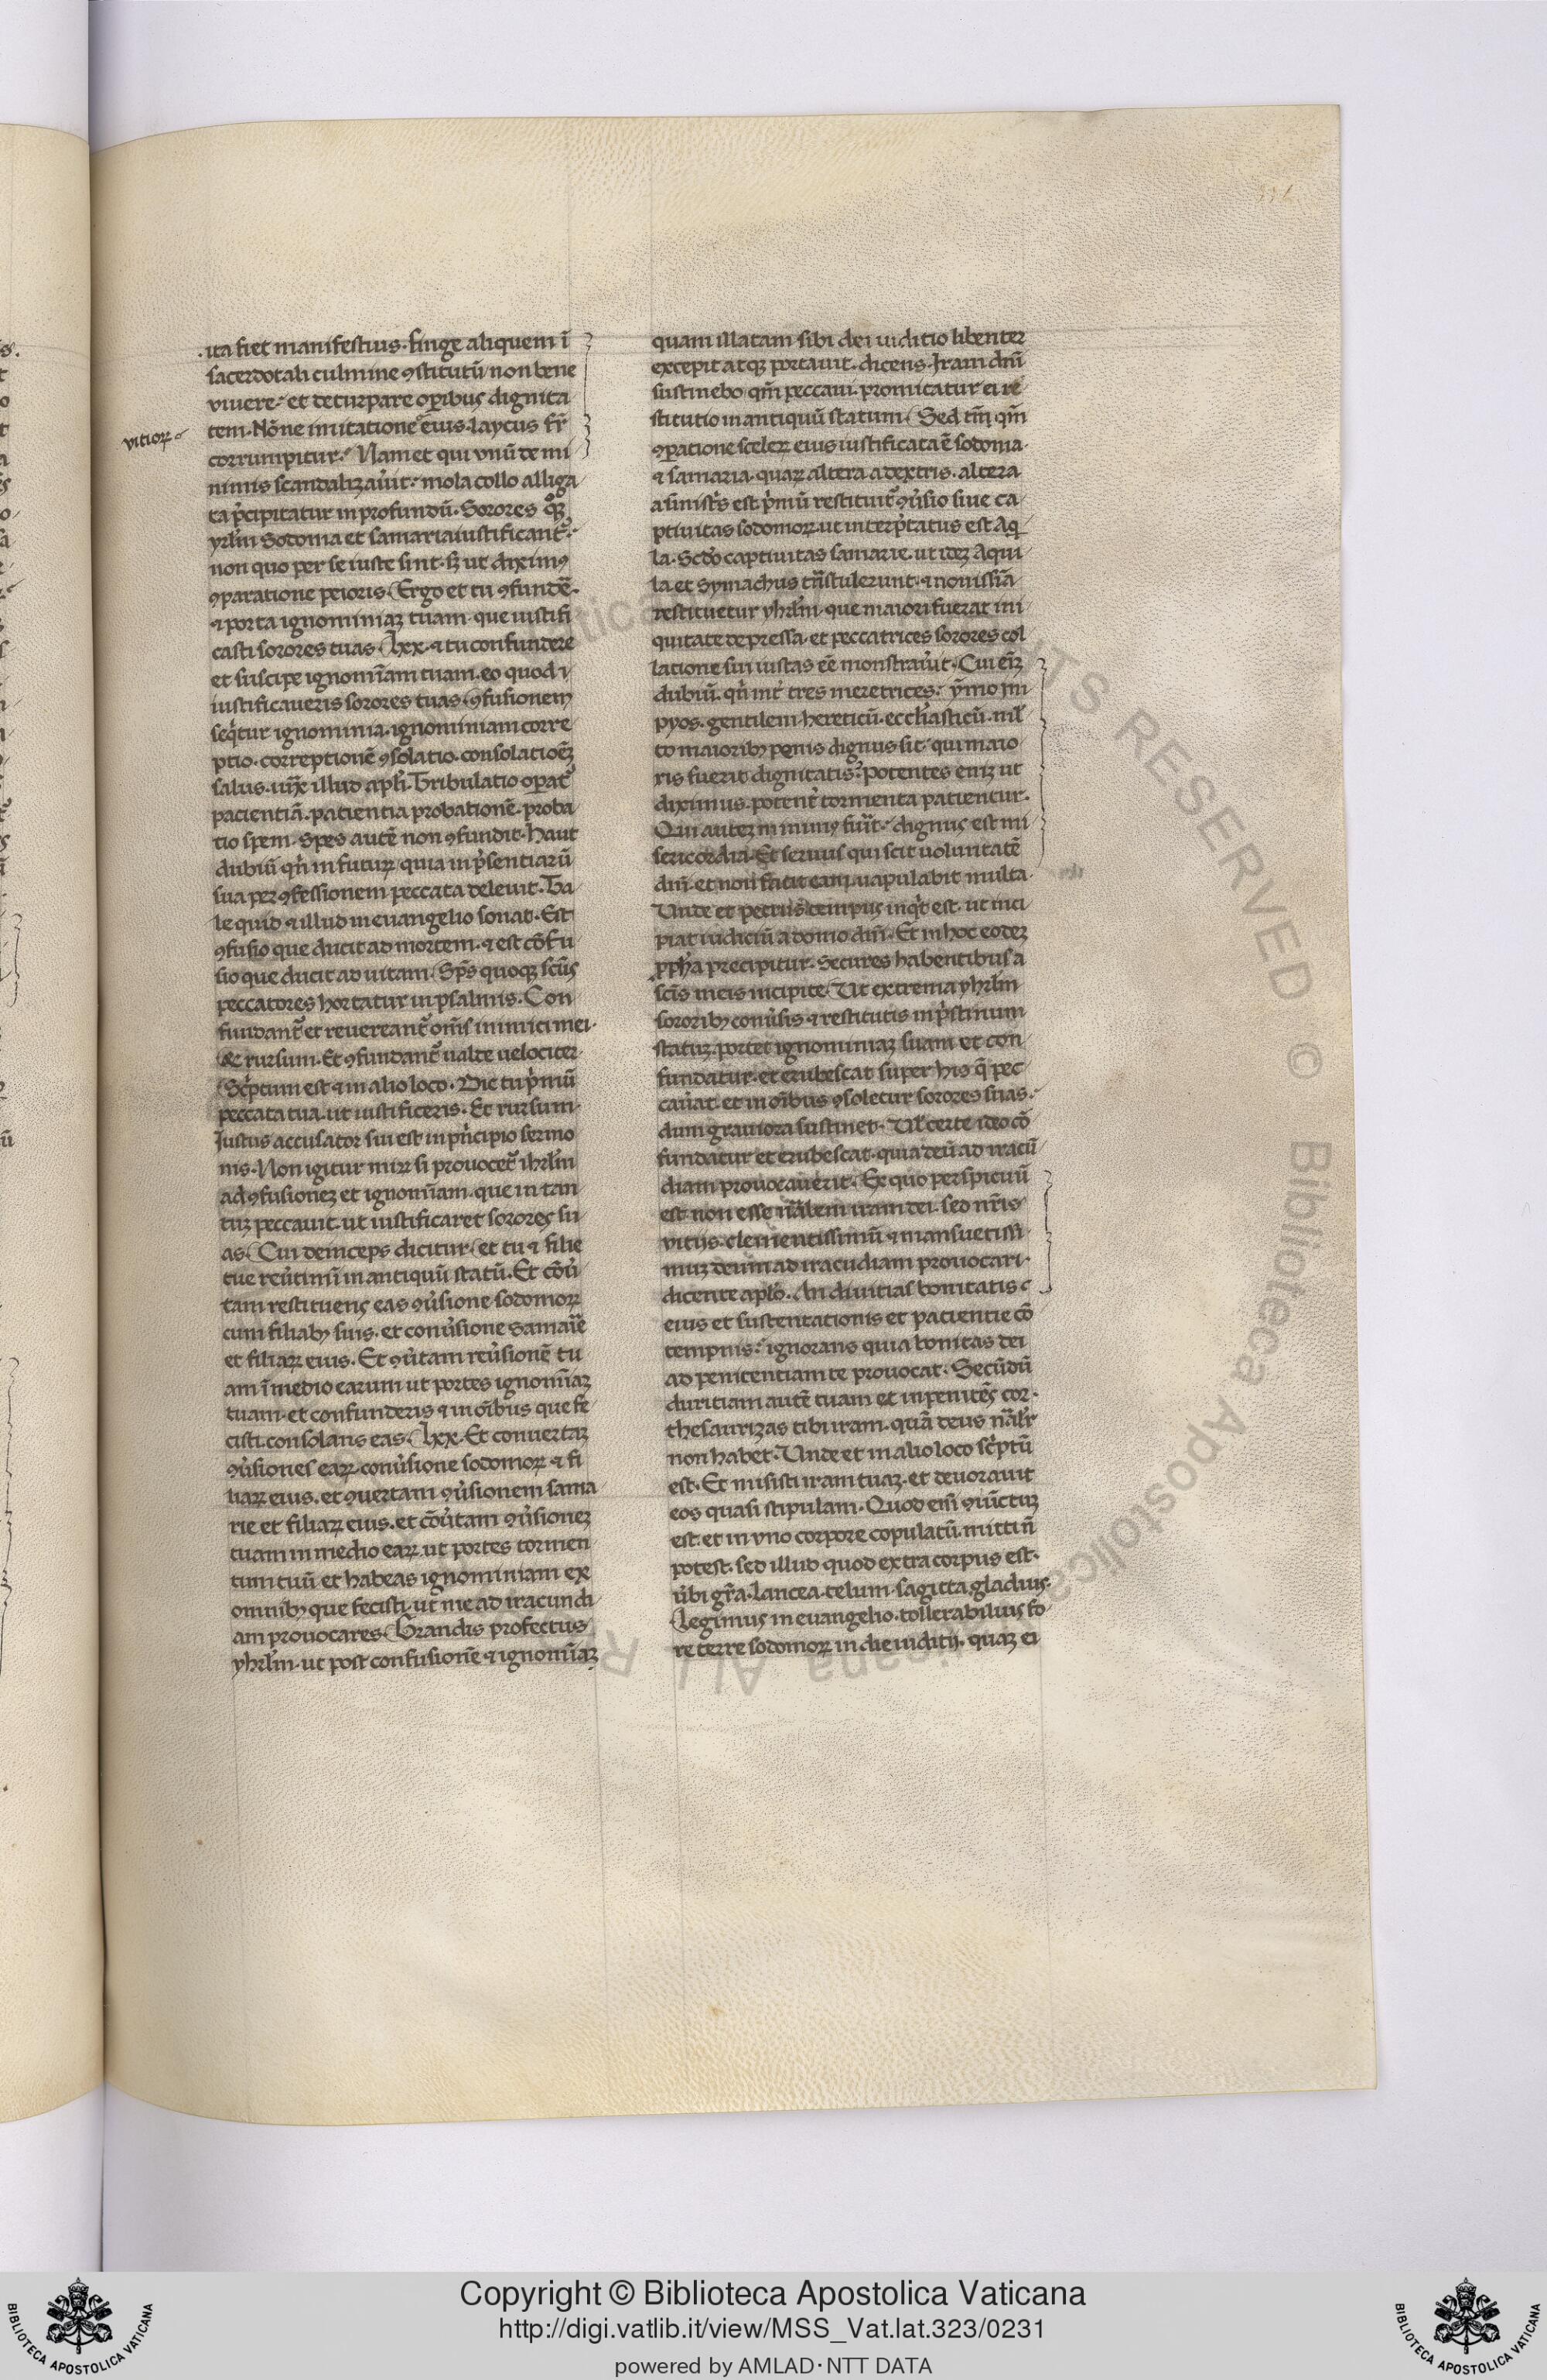 .ita fiet manifestius. finge aliquem ī
sacerdotali culmine ꝯstitutū non bene
viuere. et deturpare oꝑibus dignita
tem. Nōne imitatione eius laycus fr̄
vitioꝝ
corrumpitur. Nam et qui vnū de mi
nimis scandalizau̓it. mola collo alliga
ta p̓cipitatur in profundū. Sorores
yrl̄m Sodoma et samaria iustificant᷑.
non quo per se iuste sint. sꝫ ut diximꝰ
ꝯparatione peioris. Ergo et tu ꝯfundē.
⁊ porta ignominiaꝫ tuam. que iustifi
casti sorores tuas. Lxx. ⁊ tu confundere
et suscipe ignomīam tuam. eo quod
iustificaueris sorores tuas. ꝯfusionem
seq̓tur ignominia. ignominiam corre
ptio. correptionē ꝯsolatio. consolatioēꝫ
salus. iux̄ illud apl̓i. Tribulatio oꝑat᷑
pacientiā. patientia probationē. proba
tio spem. Spes autē non ꝯfundit. haut
dubiū qn̄ in futuꝝ quia in p̓sentiarū
sua per ꝯfessionem peccata deleuit. Ta
le quid ⁊ illud in euangelio sonat. Est
ꝯfusio que ducit ad mortem. ⁊ est cōfu
sio que ducit ad uitam. Sp̄s quoqꝫ sc̄us
peccatores hortatur in psalmis. Con
fundant᷑ et reuereant᷑ om̄s inimici mei.
& rursum. Et ꝯfundant᷑ ualde uelociter
Sc̓ptum est ⁊ in alio loco. Dic tu p̓mū
peccata tua. ut iustificeris. Et rursum.
Iustus accusator sui est in pn̓cipio sermo
nis. Non igitur miꝝ si prouocet᷑ ihrl̄m
ad ꝯfusionēꝫ et ignomīam. que in tan
tuꝫ peccauit. ut iustificaret sorores su
as. Cui deinceps dicitur. et tu ⁊ filie
tue reu̓timī in antiquū statū. Et cōu̓
tam restituens eas ꝯu̓sione sodomoꝝ
cum filiabꝰ suis. et conu̓sione Samar̄ie
et filiaꝝ eius. Et ꝯu̓tam reu̓sionē tu
am ī medio earum ut portes ignomīaꝫ
tuam. et confunderis ⁊ in oībus que fe
cisti. consolans eas. Lxx. Et conuertaꝫ
ꝯu̓siones eaꝝ. conu̓sione sodomoꝝ ⁊ fi
liaꝝ eius. et ꝯuertam ꝯu̓sionem sama
rie et filiaꝝ eius. et cōu̓tam ꝯu̓sionēꝫ
tuam in medio eaꝝ ut portes tormen
tum tuū et habeas ignominiam ex
omnibꝰ que fecisti. ut me ad iracundi
am prouocares. Grandis profectus
yhrl̄m. ut post confusionē ⁊ ignomīaꝫ
quam illatam sibi dei iuditio libenter
excepit atqꝫ portauit. dicens. Iram dn̄i
sustinebo qm̄ peccaui. promicatur ei re
stitutio in antiquū statum. Sed tm̄ qm̄
ꝯparatione sceleꝝ eius iustificata ē sodoma.
⁊ samaria. quaꝝ altera a dextris. altera
a sinistr̓s est. p̓mū restituit᷑ ꝯu̓sio siue ca
ptiuitas sodomoꝝ. ut interp̓tatus est Aq̓
la. Scd̓o captiuitas samarie. ut ideꝫ Aqui
la et Symachus trāstulerunt. ⁊ nouissīa
restituetur yhrl̄m. que maiori fuerat ini
quitate depressa. et peccatrices sorores col
latione sui iustas eē monstrau̓it. Cui eīꝫ
dubiū. qn̄ int̓ tres meretrices. ȳmo im
pyos. gentilem. hereticū. eccl̄iasticū. ml̄
to maioribꝰ penis dignus sit. qui maio
ris fuerit dignitatis. potentes eniꝫ ut
diximus. potent̓ tormenta patientur.
Qui auteꝫ minimꝰ fuīt. dignus est mi
sericordia. Et seruus qui scit uoluntatē
dn̄i. et non facit eam. uapulabit multa.
Unde et petrus tempus inq̓t est. ut inci
piat iudiciū a domo dn̄i. Et in hoc eodeꝫ
ꝓph̄a precipitur. Secures habentibus a
sc̄is meis incipite. Ut extrema yhrl̄m
sororibꝰ conu̓sis ⁊ restitutis in p̓stinum
statuꝫ. portet ignominiaꝫ suam et con
fundatur. et erubescat super his q̄ pec
cau̓at. et in oībus ꝯsoletur sorores suas.
dum grauiora sustinet. Ul̓ certe ideo cō
fundatur et erubescat. quia deū ad iracū
diam prouocauerit. Ex quo perspicuū
est. non esse nāl̓em iram dei. sed nr̄is
vitijs. clementissimū ⁊ mansuetissi
muꝫ deum ad iracūdiam prouocari.
dicente apl̓o. An diuitias bonitatis
eius et sustentationis et patientie cō
tempnis. ignorans quia bonitas dei
ad penitentiam te prouocat. Secūdū
duritiam autē tuam et inpenitēs cor.
thesaurizas tibi iram. quā deus nāl̓r
non habet. Unde et in alio loco sc̓ptū
est. Et misisti iram tuaꝫ. et deuorauit
eos quasi stipulam. Quod enī ꝯiūctuꝫ
est. et in vno corpore copulatū. mitti ñ
potest. sed illud quod extra corpus est.
u̓bi gr̄a. lancea. telum. sagitta gladius.
Legimus in euangelio. tollerabilius fo
re terre sodomoꝝ in die iuditij. quaꝫ ei
Copyright © Biblioteca Apostolica Vaticana
http://digi.vatlib.it/view/MSS_Vat.lat.323/0231
powered by AMLAD·NTT DATA
BIBLIOTECA APOSTOLICA VATICANA
BIBLIOTECA APOSTOLICA VATICANA